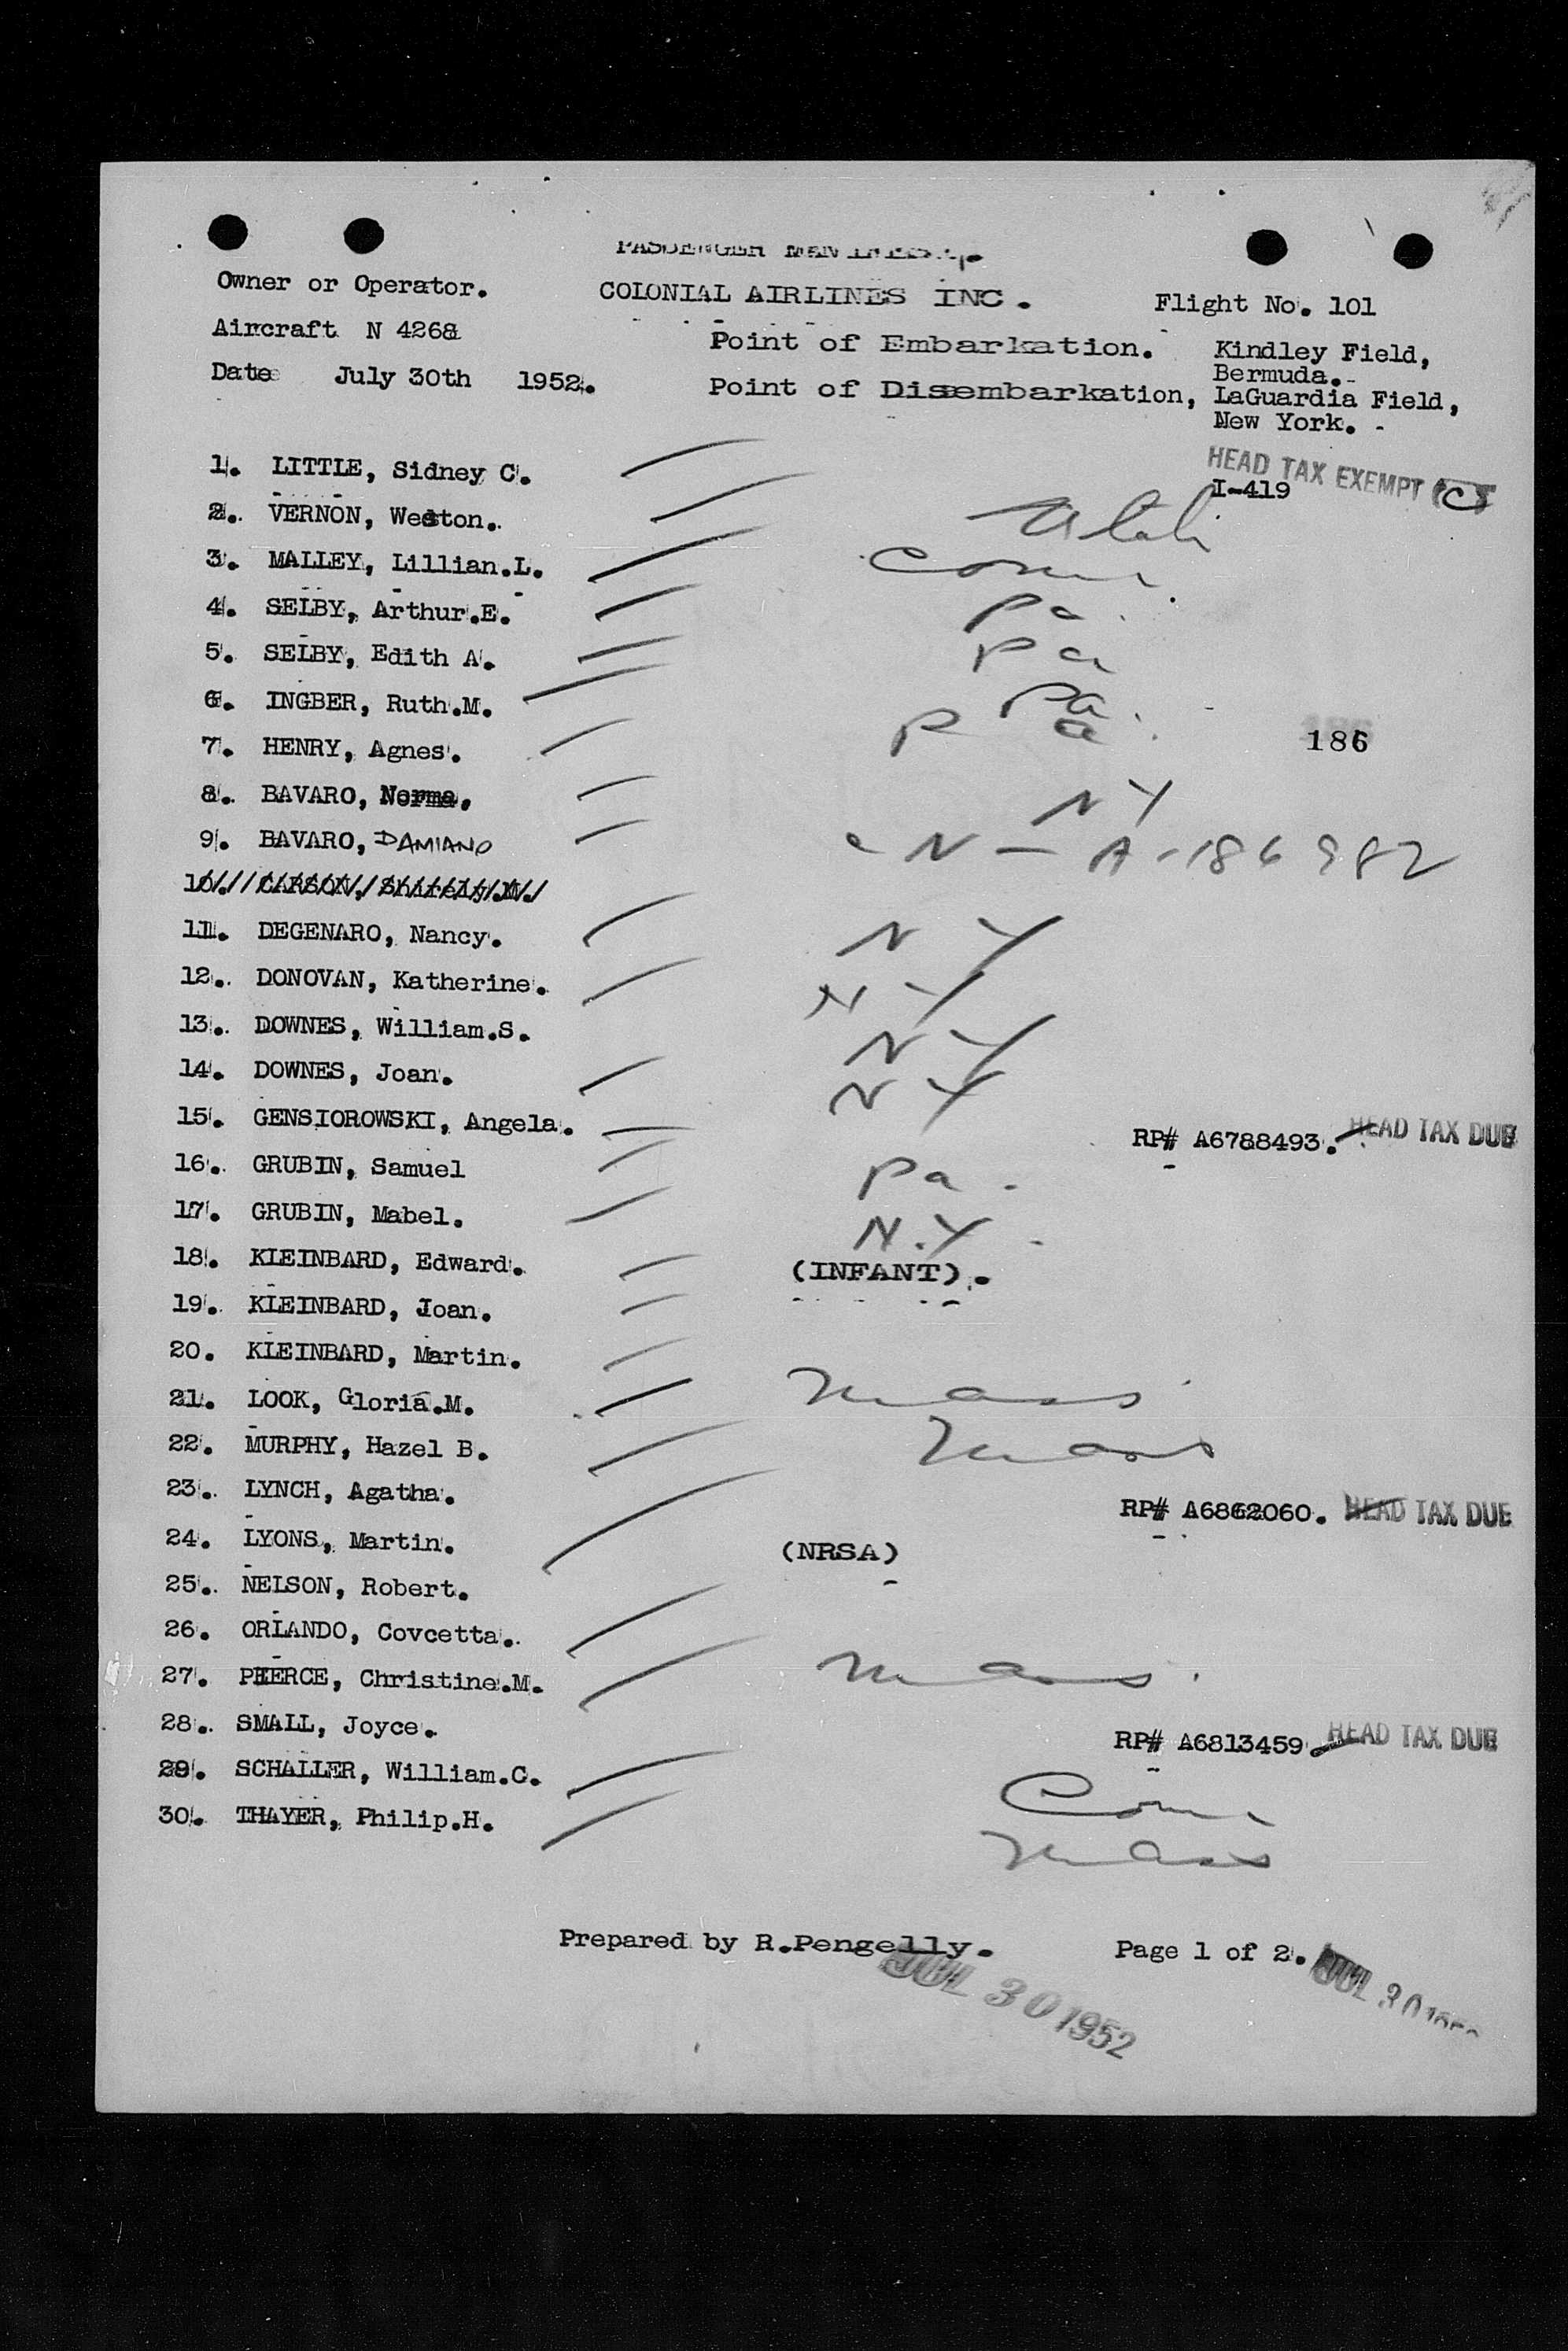 PASSENGER MANIFEST.
Owner or Operator. COLONIAL AIRLINES INC. Flight No. 101
Aircraft N 4268 Point of Embarkation. Kindley Field,
Bermuda.-
Date July 30th 1952. Point of Disembarkation, LaGuardia Field,
New York. -
HEAD TAX EXEMPT (C)
1. LITTLE, Sidney C. I-419
2. VERNON, Weston. Utah
3. MALLEY, Lillian.L. Conn.
4. SELBY, Arthur.E. Pa.
5. SELBY, Edith A. Pa
6. INGBER, Ruth.M. Pa.
7. HENRY, Agnes. Pa.
186
8. BAVARO, Norma. NY
9. BAVARO, DAMIANO N - A-186 982
10. CARSON, Shirely.M.
11. DEGENARO, Nancy. NY
12. DONOVAN, Katherine. NY
13. DOWNES, William.S. NY
14. DOWNES, Joan. NY
15. GENSIOROWSKI, Angela. RP# A6788493. HEAD TAX DUE
16. GRUBIN, Samuel Pa.
17. GRUBIN, Mabel. N.Y.
18. KLEINBARD, Edward. (INFANT).
19. KLEINBARD, Joan.
20. KLEINBARD, Martin.
21. LOOK, Gloria.M. Mass
22. MURPHY, Hazel B. Mass
23. LYNCH, Agatha. RP# A6862060. HEAD TAX DUE
24. LYONS, Martin. (NRSA)
25. NELSON, Robert.
26. ORLANDO, Covcetta.
27. PIERCE, Christine.M. Mass.
28. SMALL, Joyce. RP# A6813459 HEAD TAX DUE
29. SCHALLER, William.C. Conn
30. THAYER, Philip.H. Mass
Prepared by R.Pengelly. Page 1 of 2.
JUL 30 1952 JUL 30 1952